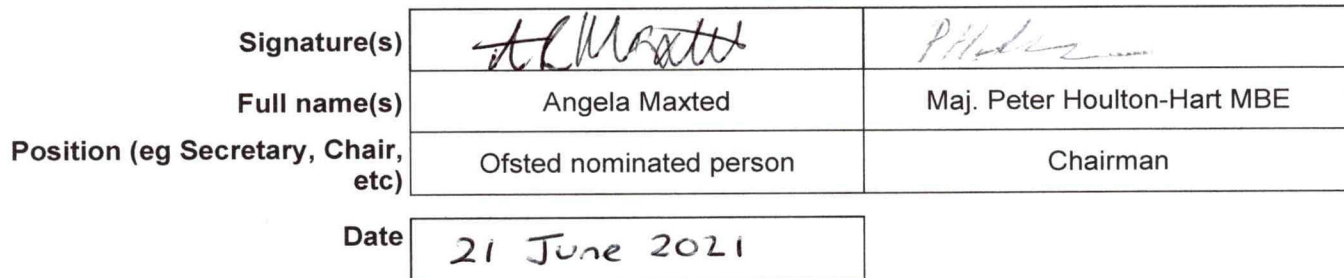 Signature(s) A R Maxted
Full name(s) Angela Maxted Maj. Peter Houlton-Hart MBE
Position (eg Secretary, Chair, Ofsted nominated person Chairman
etc)
Date 21 June 2021